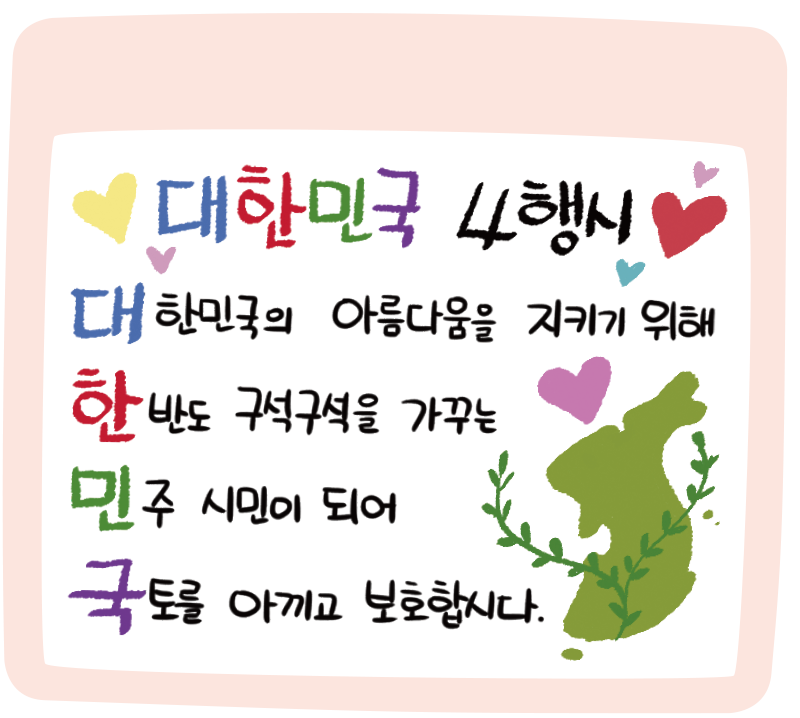 대한민국 4행시
대한민국의 아름다움을 지키기 위해
한반도 구석구석을 가꾸는
민주 시민이 되어
국토를 아끼고 보호합시다.